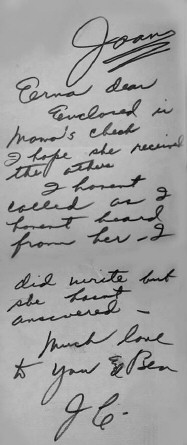 Joan
Erna dear
Enclosed is
Mama's check
I hope she received
the other
I havent
called as I
havent heard
from her - I
did write but
she hasnt
answered -
Much love
to you & Ben
J C -